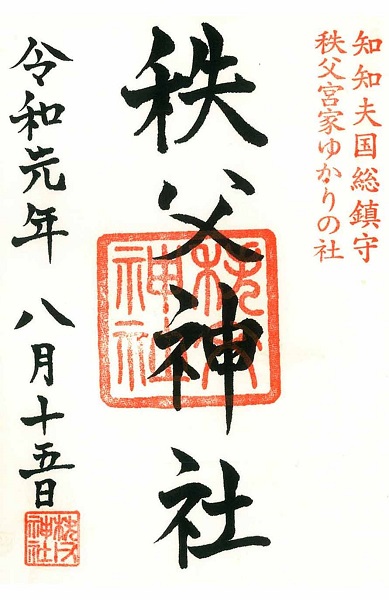 知知夫国総鎮守
秩父宮家ゆかりの社
秩父神社
秩父神社
令和元年 八月十五日
秩父神社